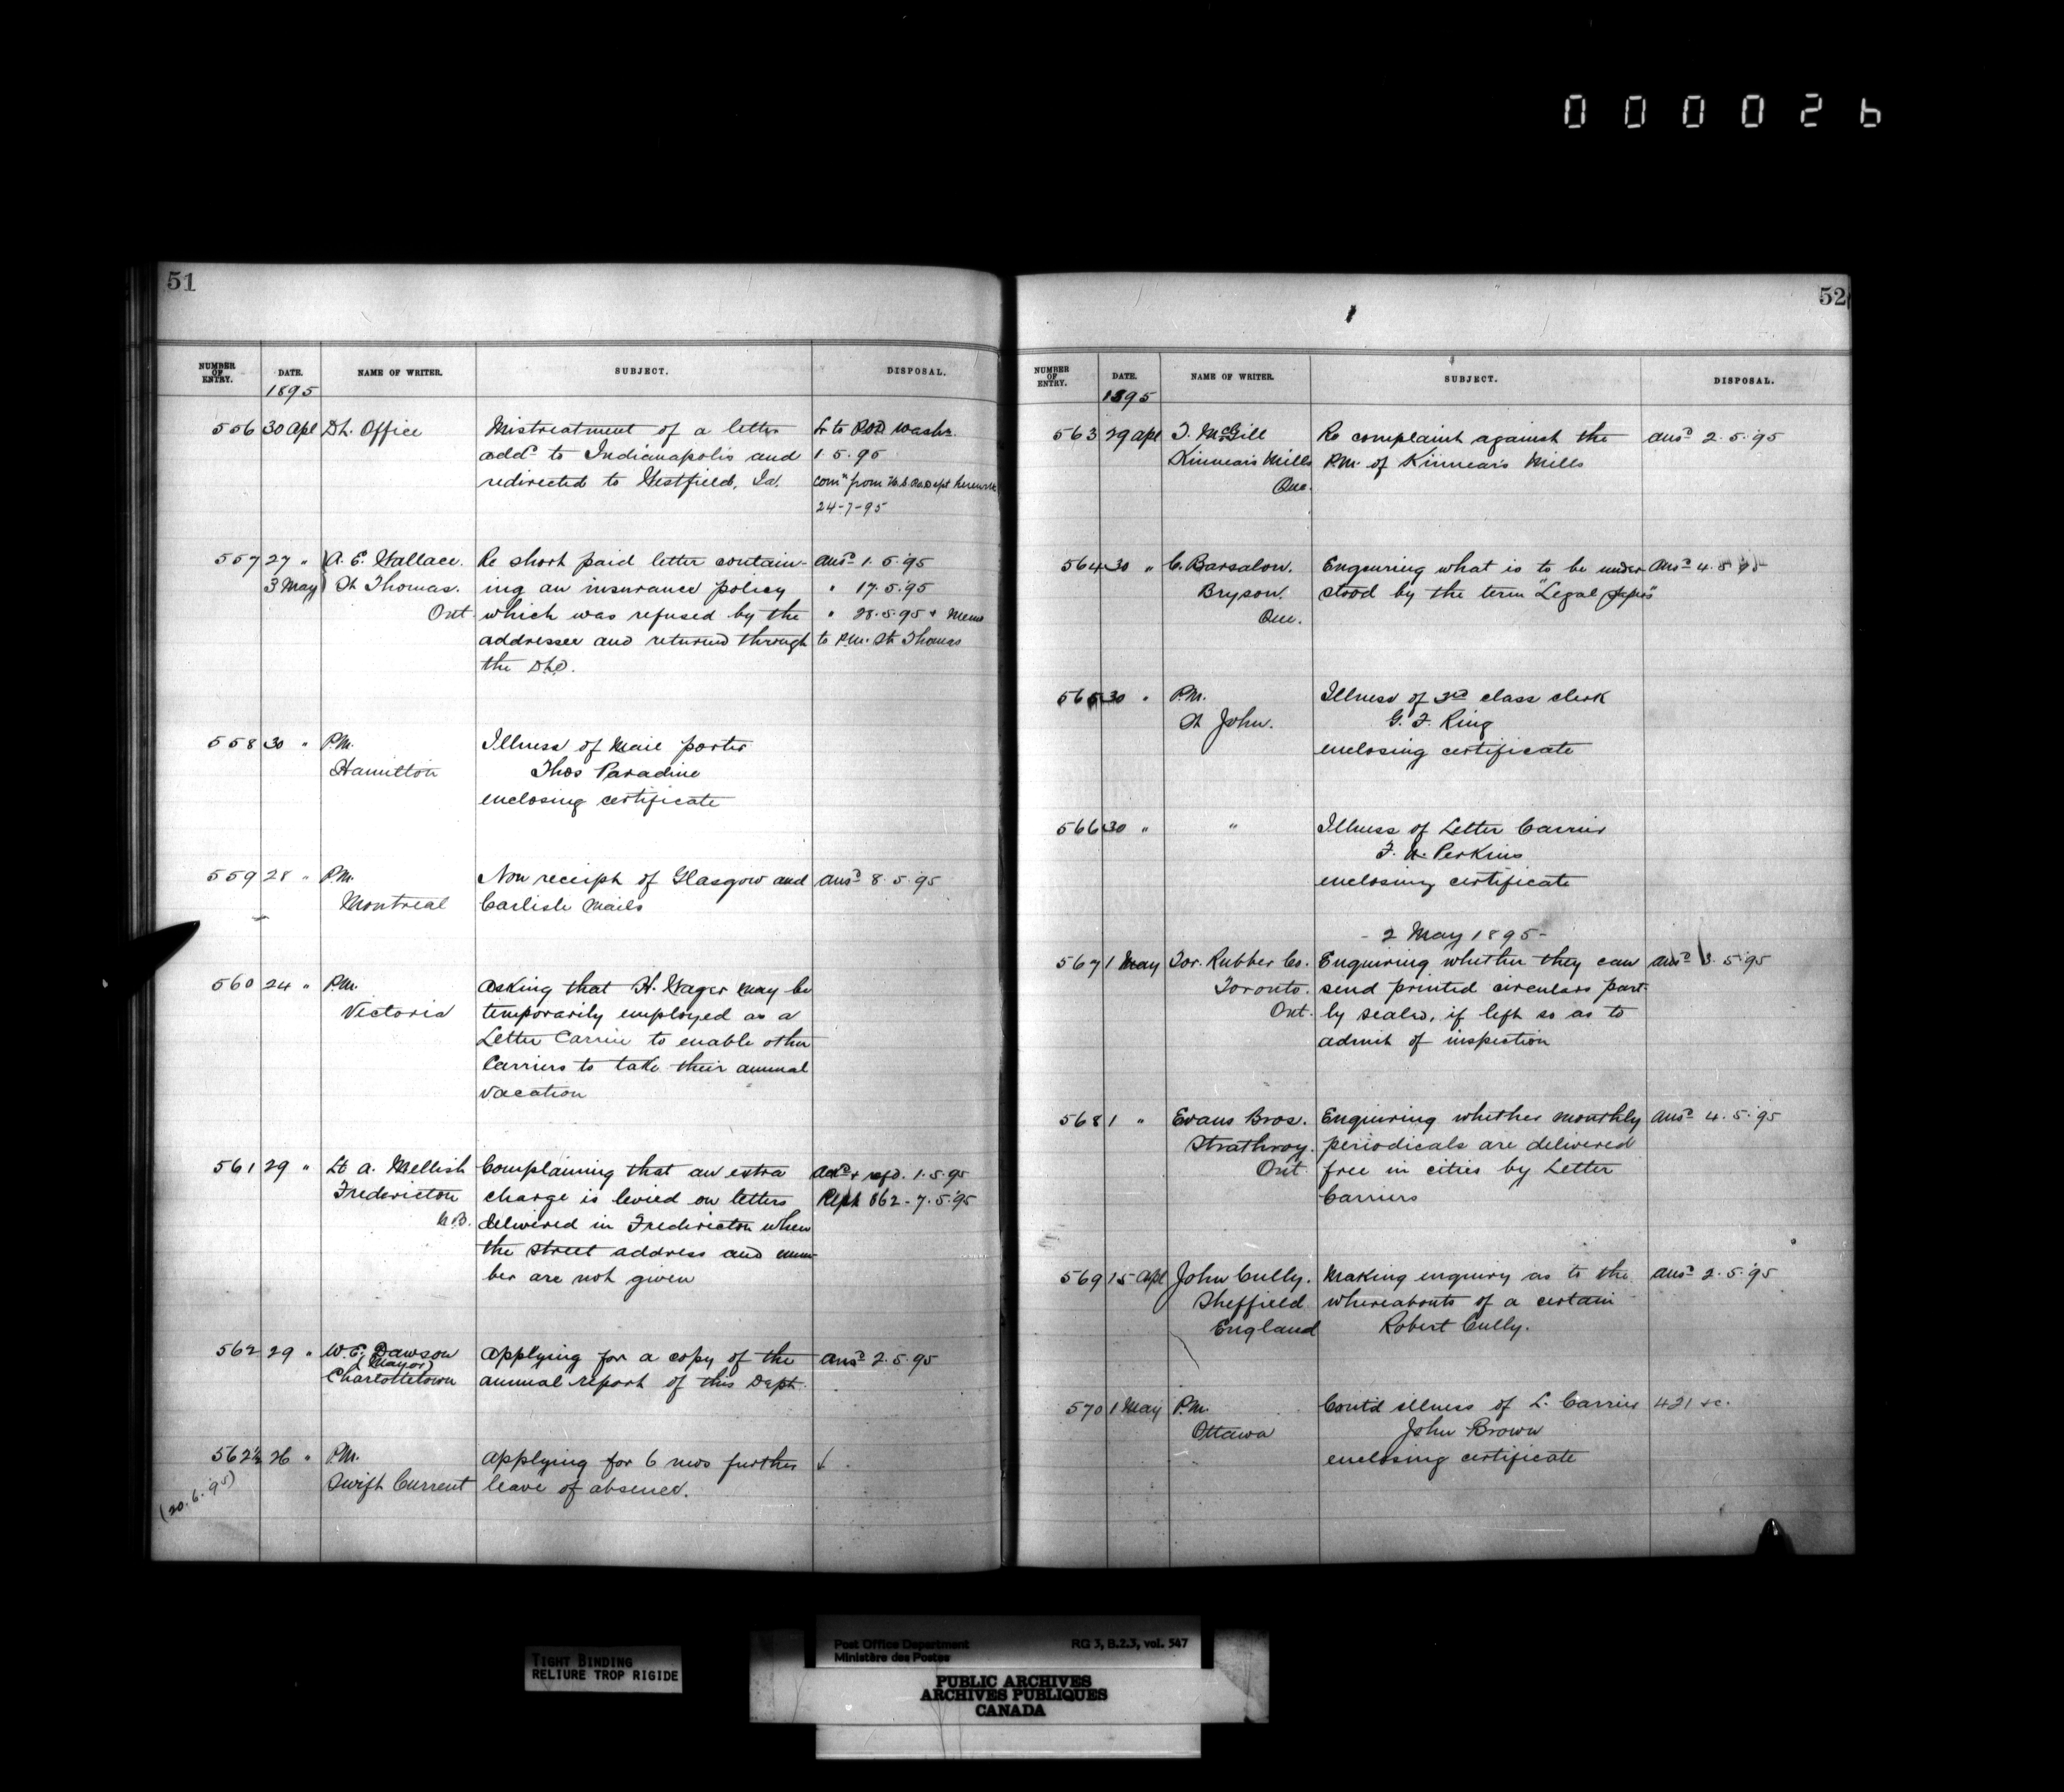 000026
51
NUMBER OF ENTRY. DATE. NAME OF WRITER. SUBJECT. DISPOSAL.
1895
556 30 Apl D.L. Office Mistreatment of a letter Lr to P.O.D. Washn.
add^d to Indianapolis and 1.5.95
redirected to Westfield, Ia. Com^n from U.S. P.O. Dept herewith
24-7-95
557 27 " A. E. Wallace. Re short paid letter contain- ans^d 1.5.'95
3 May St Thomas. ing an insurance policy " 17.5.'95
Ont. which was refused by the " 28.5.95 + Memo
addressee and returned through to P.M. St Thomas
the D.L.O.
558 30 " P.M. Illness of Mail porter
Hamilton Thos Paradine
enclosing certificate
559 28 " P.M. Non receipt of Glasgow and ans^d 8.5.95
Montreal Carlisle Mails
560 24 " P.M. Asking that H. Wager may be
Victoria temporarily employed as a
Letter Carrier to enable other
Carriers to take their annual
vacation
561 29 " Lt A. Mellish Complaining that an extra + refd. 1.5.95
Fredericton charge is levied on letters Rept 662-7.5.'95
N.B. delivered in Fredericton when
the street address and num-
ber are not given
562 29 " W. E. Dawson Applying for a copy of the ans^d 2.5.95
(Mayor)
Charlottetown annual report of this Dept.
562½ 26 " P.M. Applying for 6 mos further
(20.6.95) Swift Current leave of absence.
52
NUMBER OF ENTRY. DATE. NAME OF WRITER. SUBJECT. DISPOSAL.
1895
563 29 Apl T. McGill Re complaint against the ans^d 2.5.'95
Kinnear's Mills P.M. of Kinnear's Mills
Que.
564 30 " C. Barsalou. Enquiring what is to be under- ans^d 4.5.95
Bryson. stood by the term "Legal
Que.
565 30 " P.M. Illness of 3rd class clerk
St John. G. F. Ring
enclosing certificate
566 30 " " Illness of Letter Carrier
Perkins
enclosing certificate
- 2 May 1895 -
567 1 May Tor. Rubber Co. Enquiring whether they can ans^d 3.5.'95
Toronto. send printed circulars part-
Ont. ly sealed, if left so as to
admit of inspection
568 1 " Evans Bros. Enquiring whether monthly ans^d 4.5.'95
Strathroy. periodicals are delivered
Ont. free in cities by Letter
Carriers
569 15 Apl John Cully. Making enquiry as to the ans^d 2.5.'95
Sheffield whereabouts of a certain
England Robert Cully.
570 1 May P.M. Cont'd illness of L. Carrier 421 sc.
Ottawa John Brown
enclosing certificate
TIGHT BINDING
RELIURE TROP RIGIDE
Post Office Department RG 3, B.2.3, vol. 547
Ministère des Postes
PUBLIC ARCHIVES
ARCHIVES PUBLIQUES
CANADA